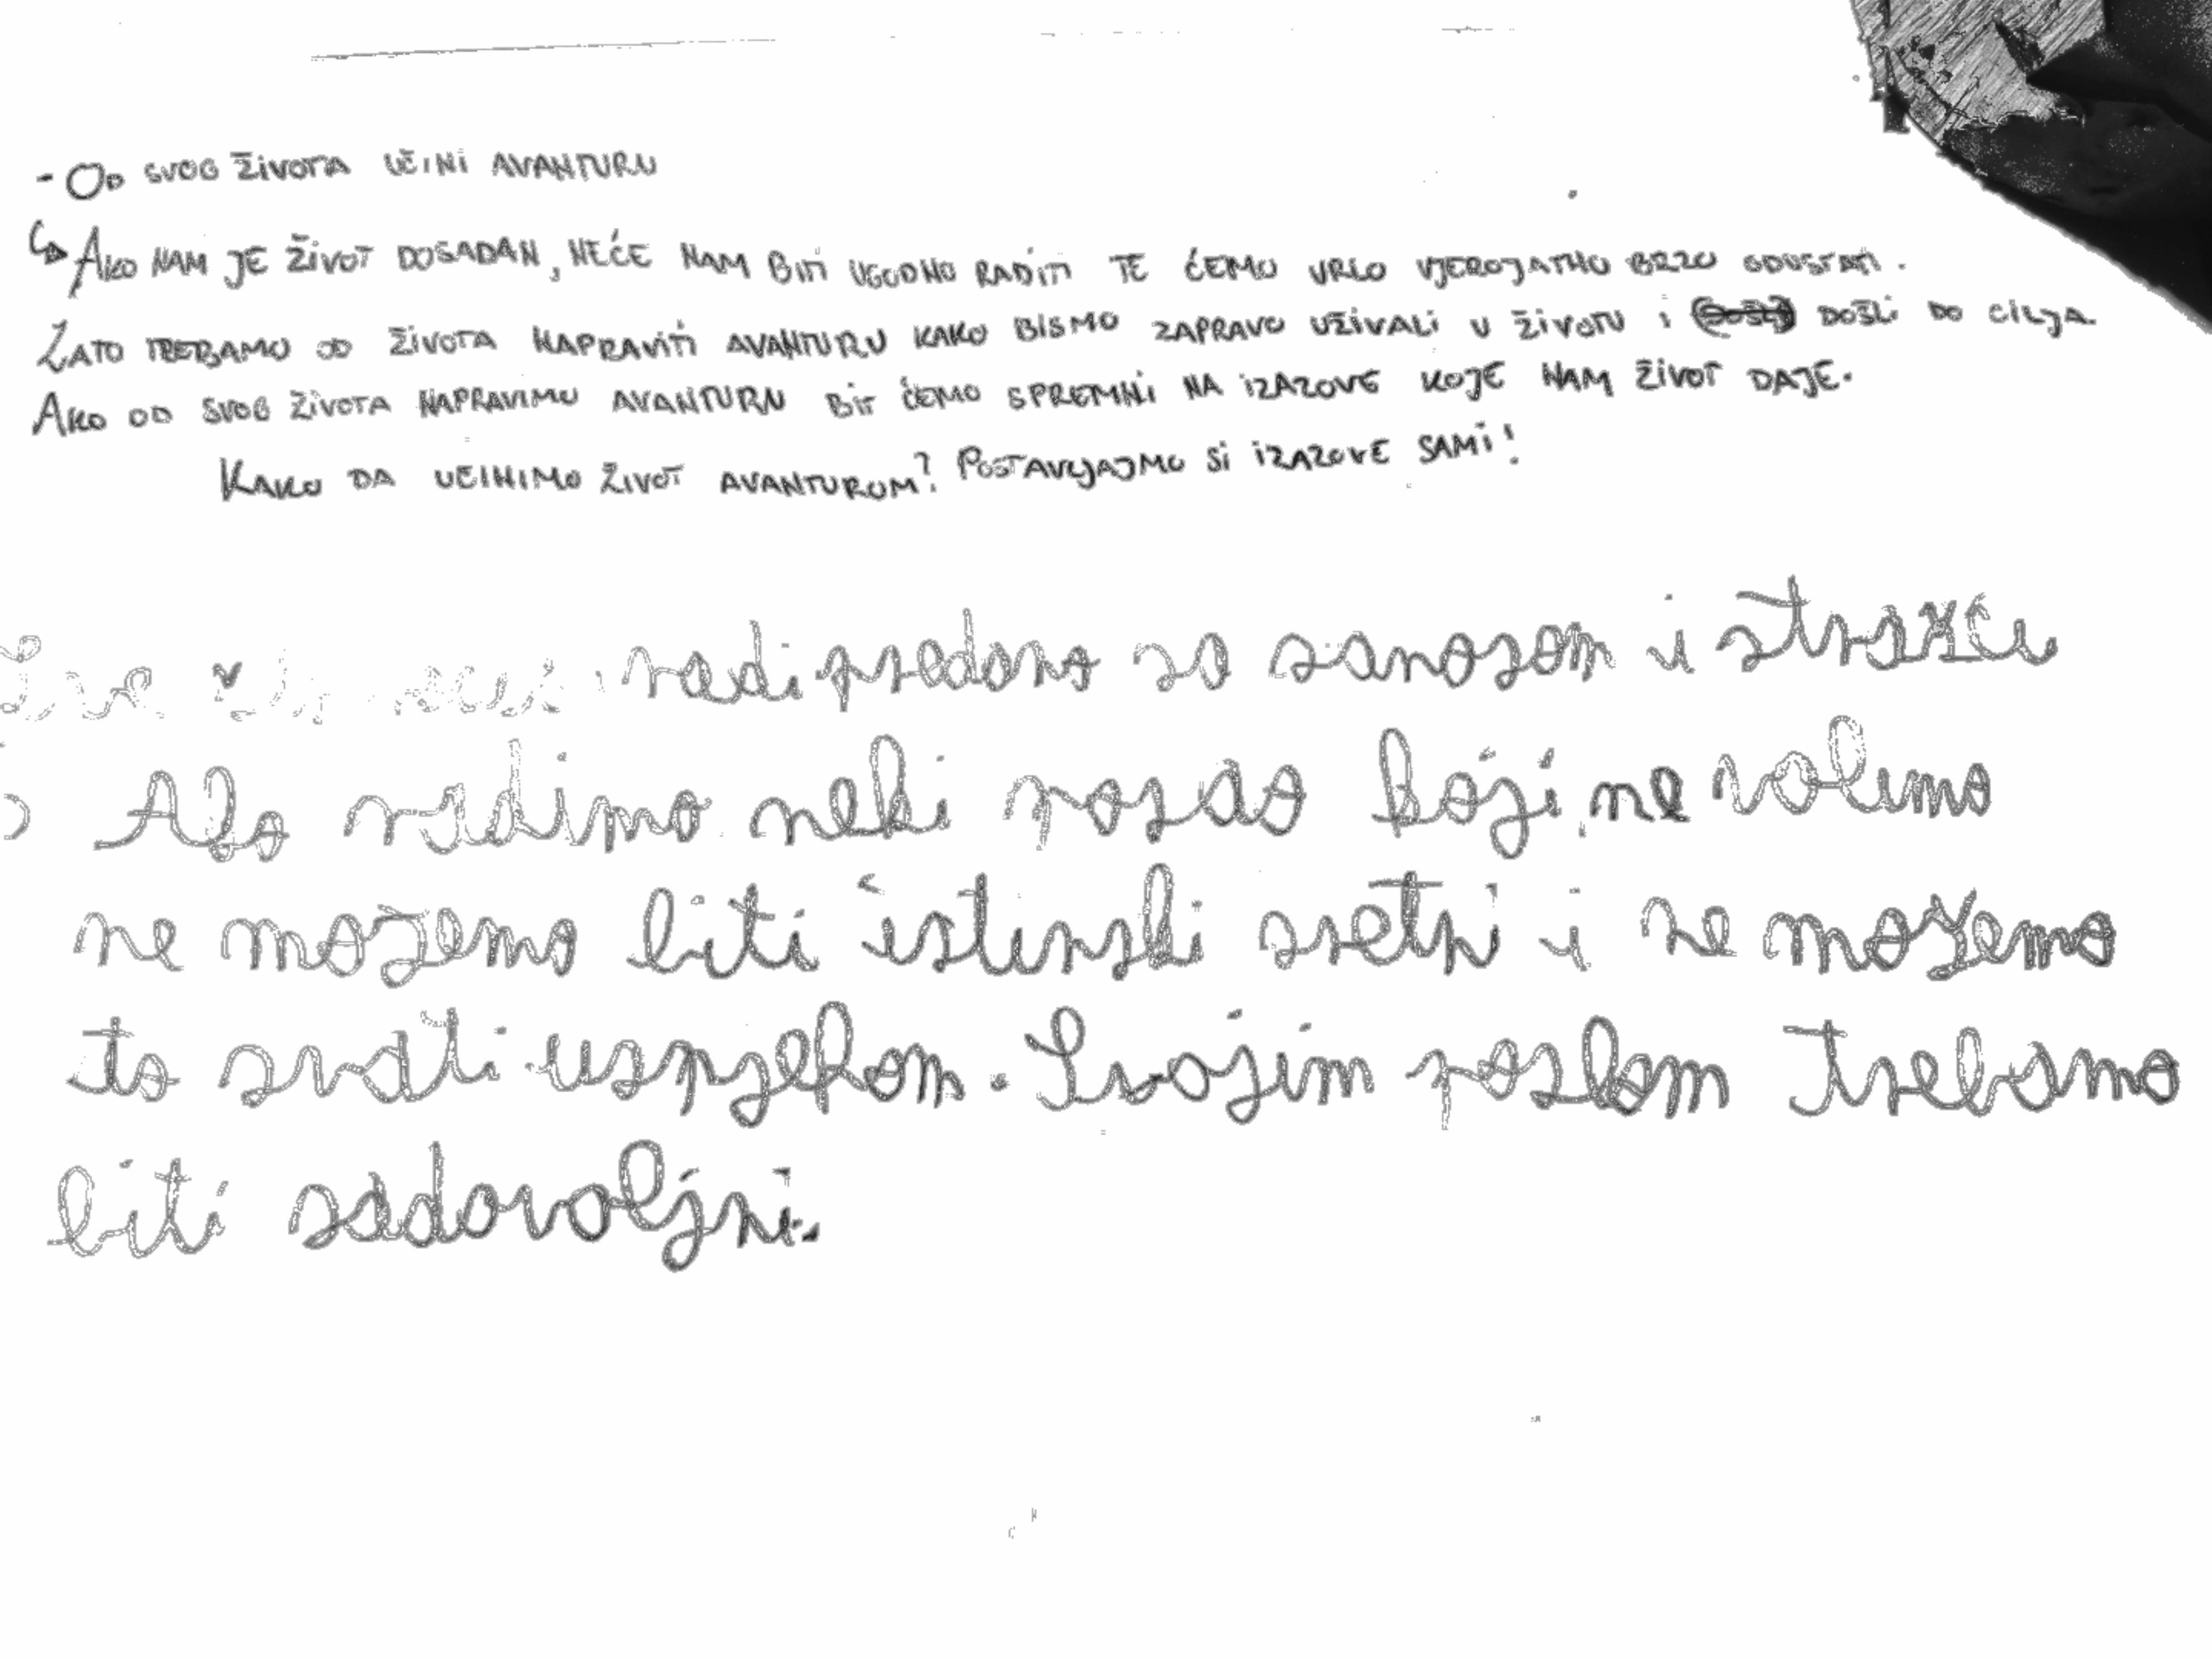 - OD SVOG ŽIVOTA UČINI AVANTURU
↳ AKO NAM JE ŽIVOT DOSADAN, NEĆE NAM BITI UGODNO RADITI TE ĆEMO VRLO VJEROJATNO BRZO ODUSTATI.
ZATO TREBAMO OD ŽIVOTA NAPRAVITI AVANTURU KAKO BISMO ZAPRAVO UŽIVALI U ŽIVOTU I DOŠLI DO CILJA.
AKO OD SVOG ŽIVOTA NAPRAVIMO AVANTURU BIT ĆEMO SPREMNI NA IZAZOVE KOJE NAM ŽIVOT DAJE.
KAKO DA UČINIMO ŽIVOT AVANTUROM? POSTAVLJAJMO SI IZAZOVE SAMI!
Sve radi predano sa zanosom i strašću
Ako radimo neki posao koji ne volimo
ne možemo biti istinski sretni i ne možemo
to zvati uspjehom. Svojim poslom trebamo
biti zadovoljni.